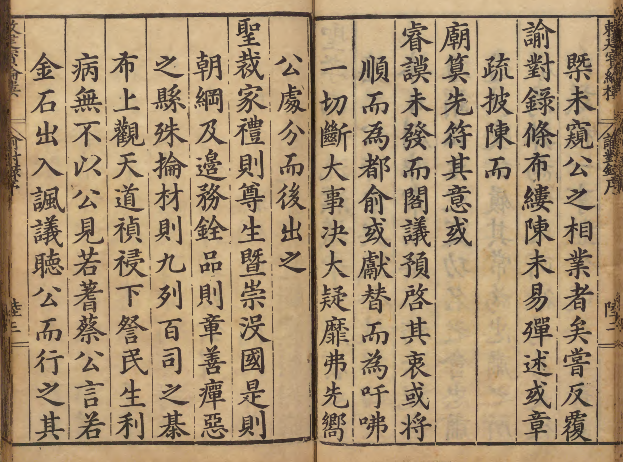 槩未窺公之相業者矣嘗反覆
諭對錄條布縷陳未易殫述或章
疏披陳而
廟筭先符其意或
睿謨未發而閣議預啓其衷或將
順而為都俞或獻替而為吁咈
一切斷大事決大疑靡弗先嚮
公處分而後出之
聖裁家禮則尊生暨崇沒國是則
朝綱及邊務銓品則章善癉惡
之縣殊掄材則九列百司之棊
布上觀天道禎祲下詧民生利
病無不以公見若蓍蔡公言若
金石出入諷議聽公而行之其